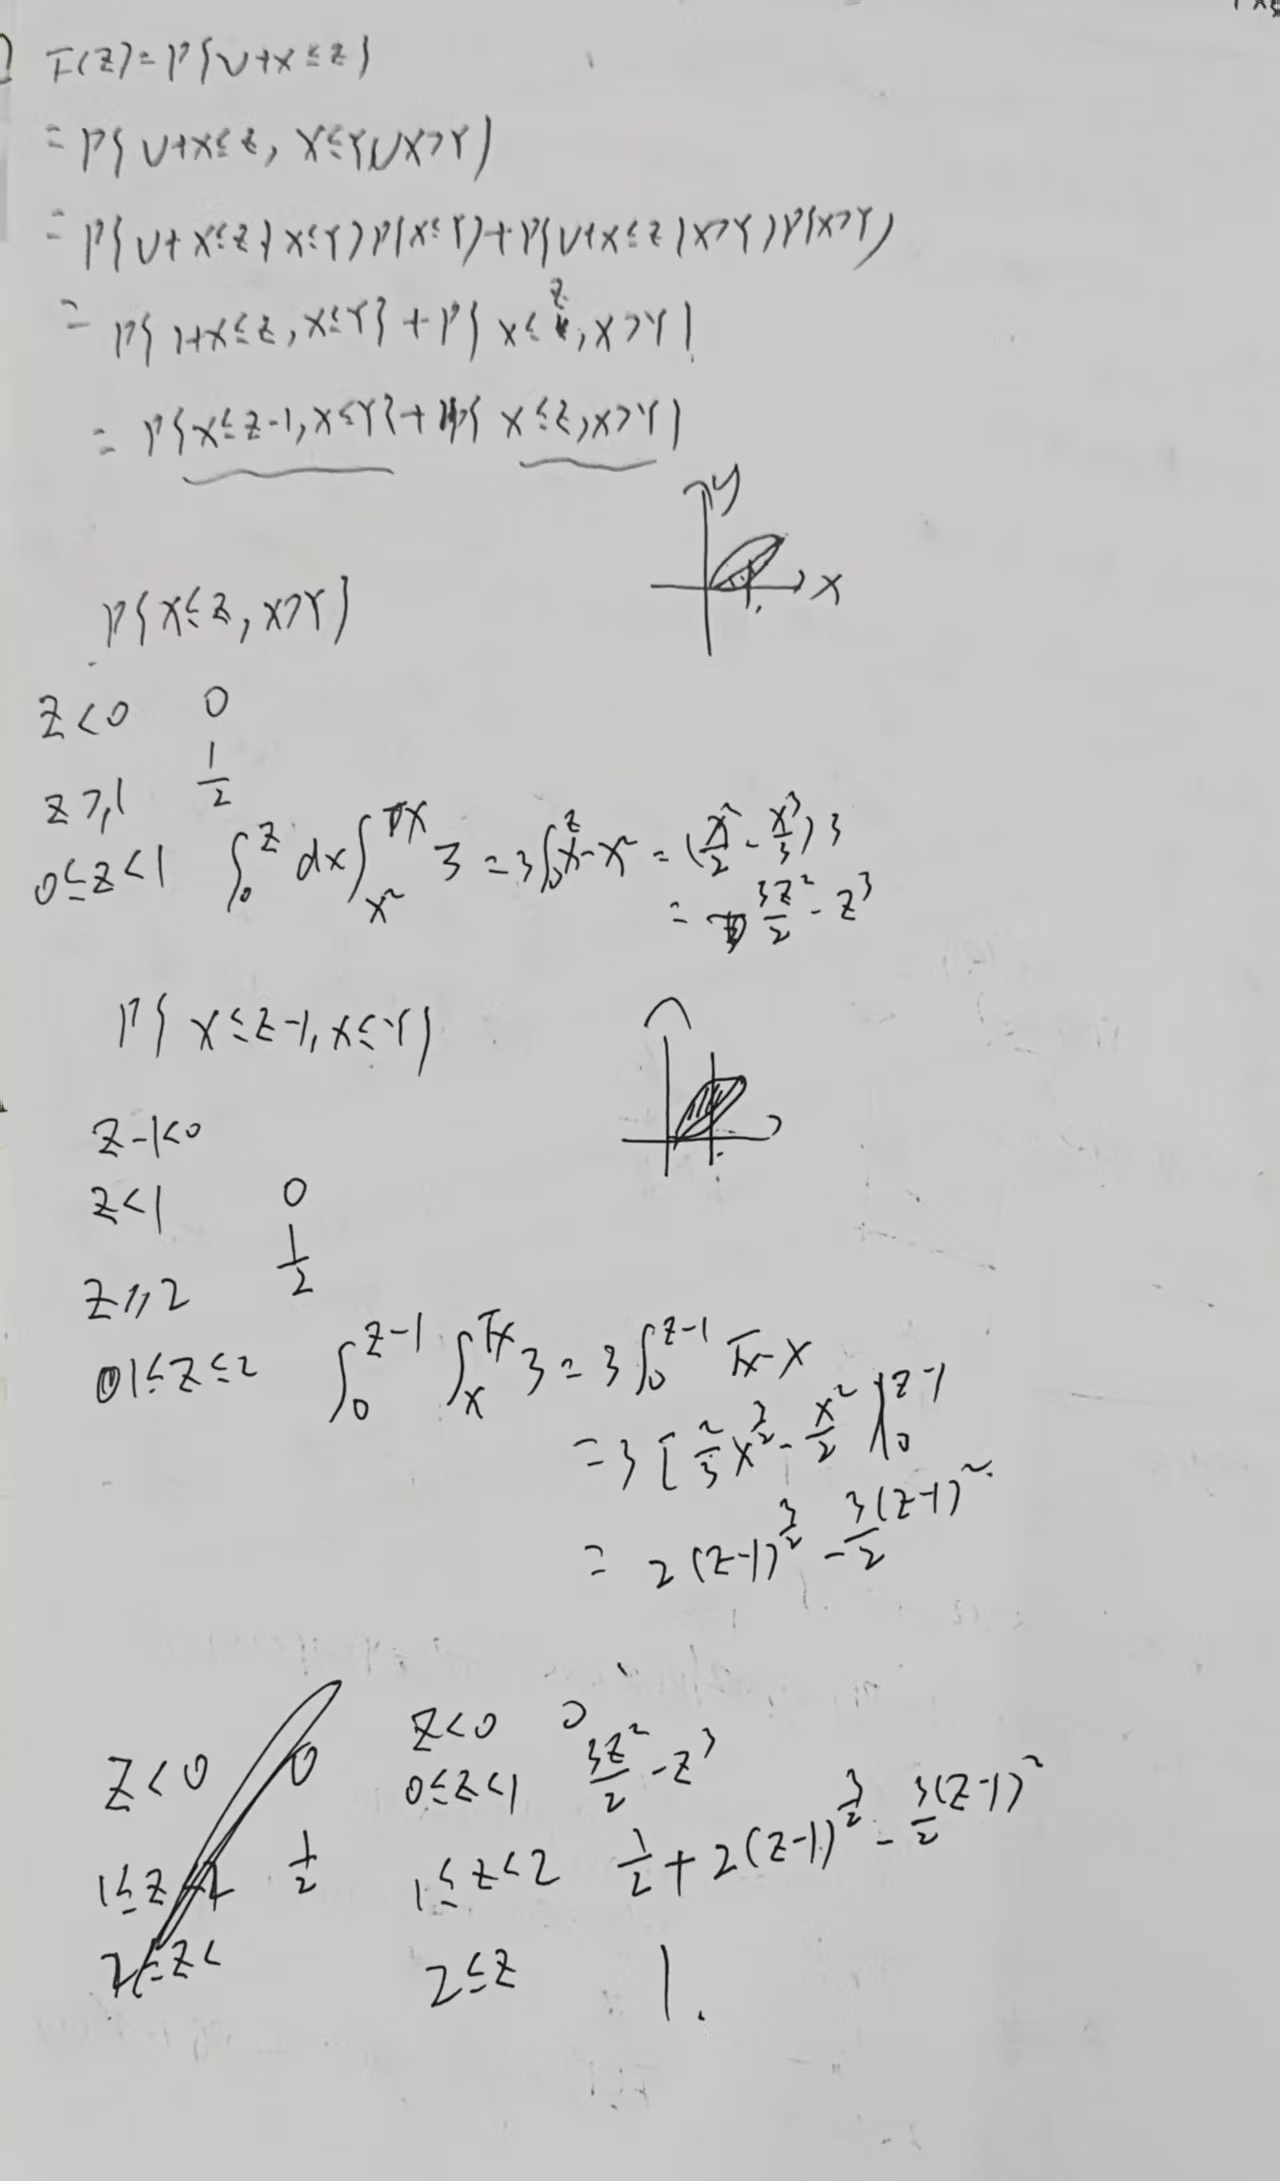 F(z)=P{U+X≤z}
=P{U+X≤z, X≤Y∪X>Y}
=P{U+X≤z|X≤Y}P{X≤Y}+P{U+X≤z|X>Y}P{X>Y}
=P{1+X≤z, X≤Y}+P{X≤z, X>Y}
=P{X≤z-1, X≤Y}+P{X≤z, X>Y}
y
x
P{X≤z, X>Y}
z<0 0
z≥1 1/2
0≤z<1 ∫₀^z dx∫_{x²}^x 3 = 3∫₀^z x-x² = (x²/2 - x³/3)3
= 3z²/2 - z³
P{X≤z-1, X≤Y}
z-1<0
z<1 0
z≥2 1/2
1≤z≤2 ∫₀^{z-1} ∫_x^{√x} 3 = 3∫₀^{z-1} √x-x
=3[2/3 x^{3/2} - x²/2]|₀^{z-1}
= 2(z-1)^{3/2} - 3(z-1)²/2
z<0 0
z<0 0
0≤z<1 3z²/2 - z³
1≤z 1/2
1≤z<2 1/2+2(z-1)^{3/2} - 3/2(z-1)²
2≤z<
2≤z 1.